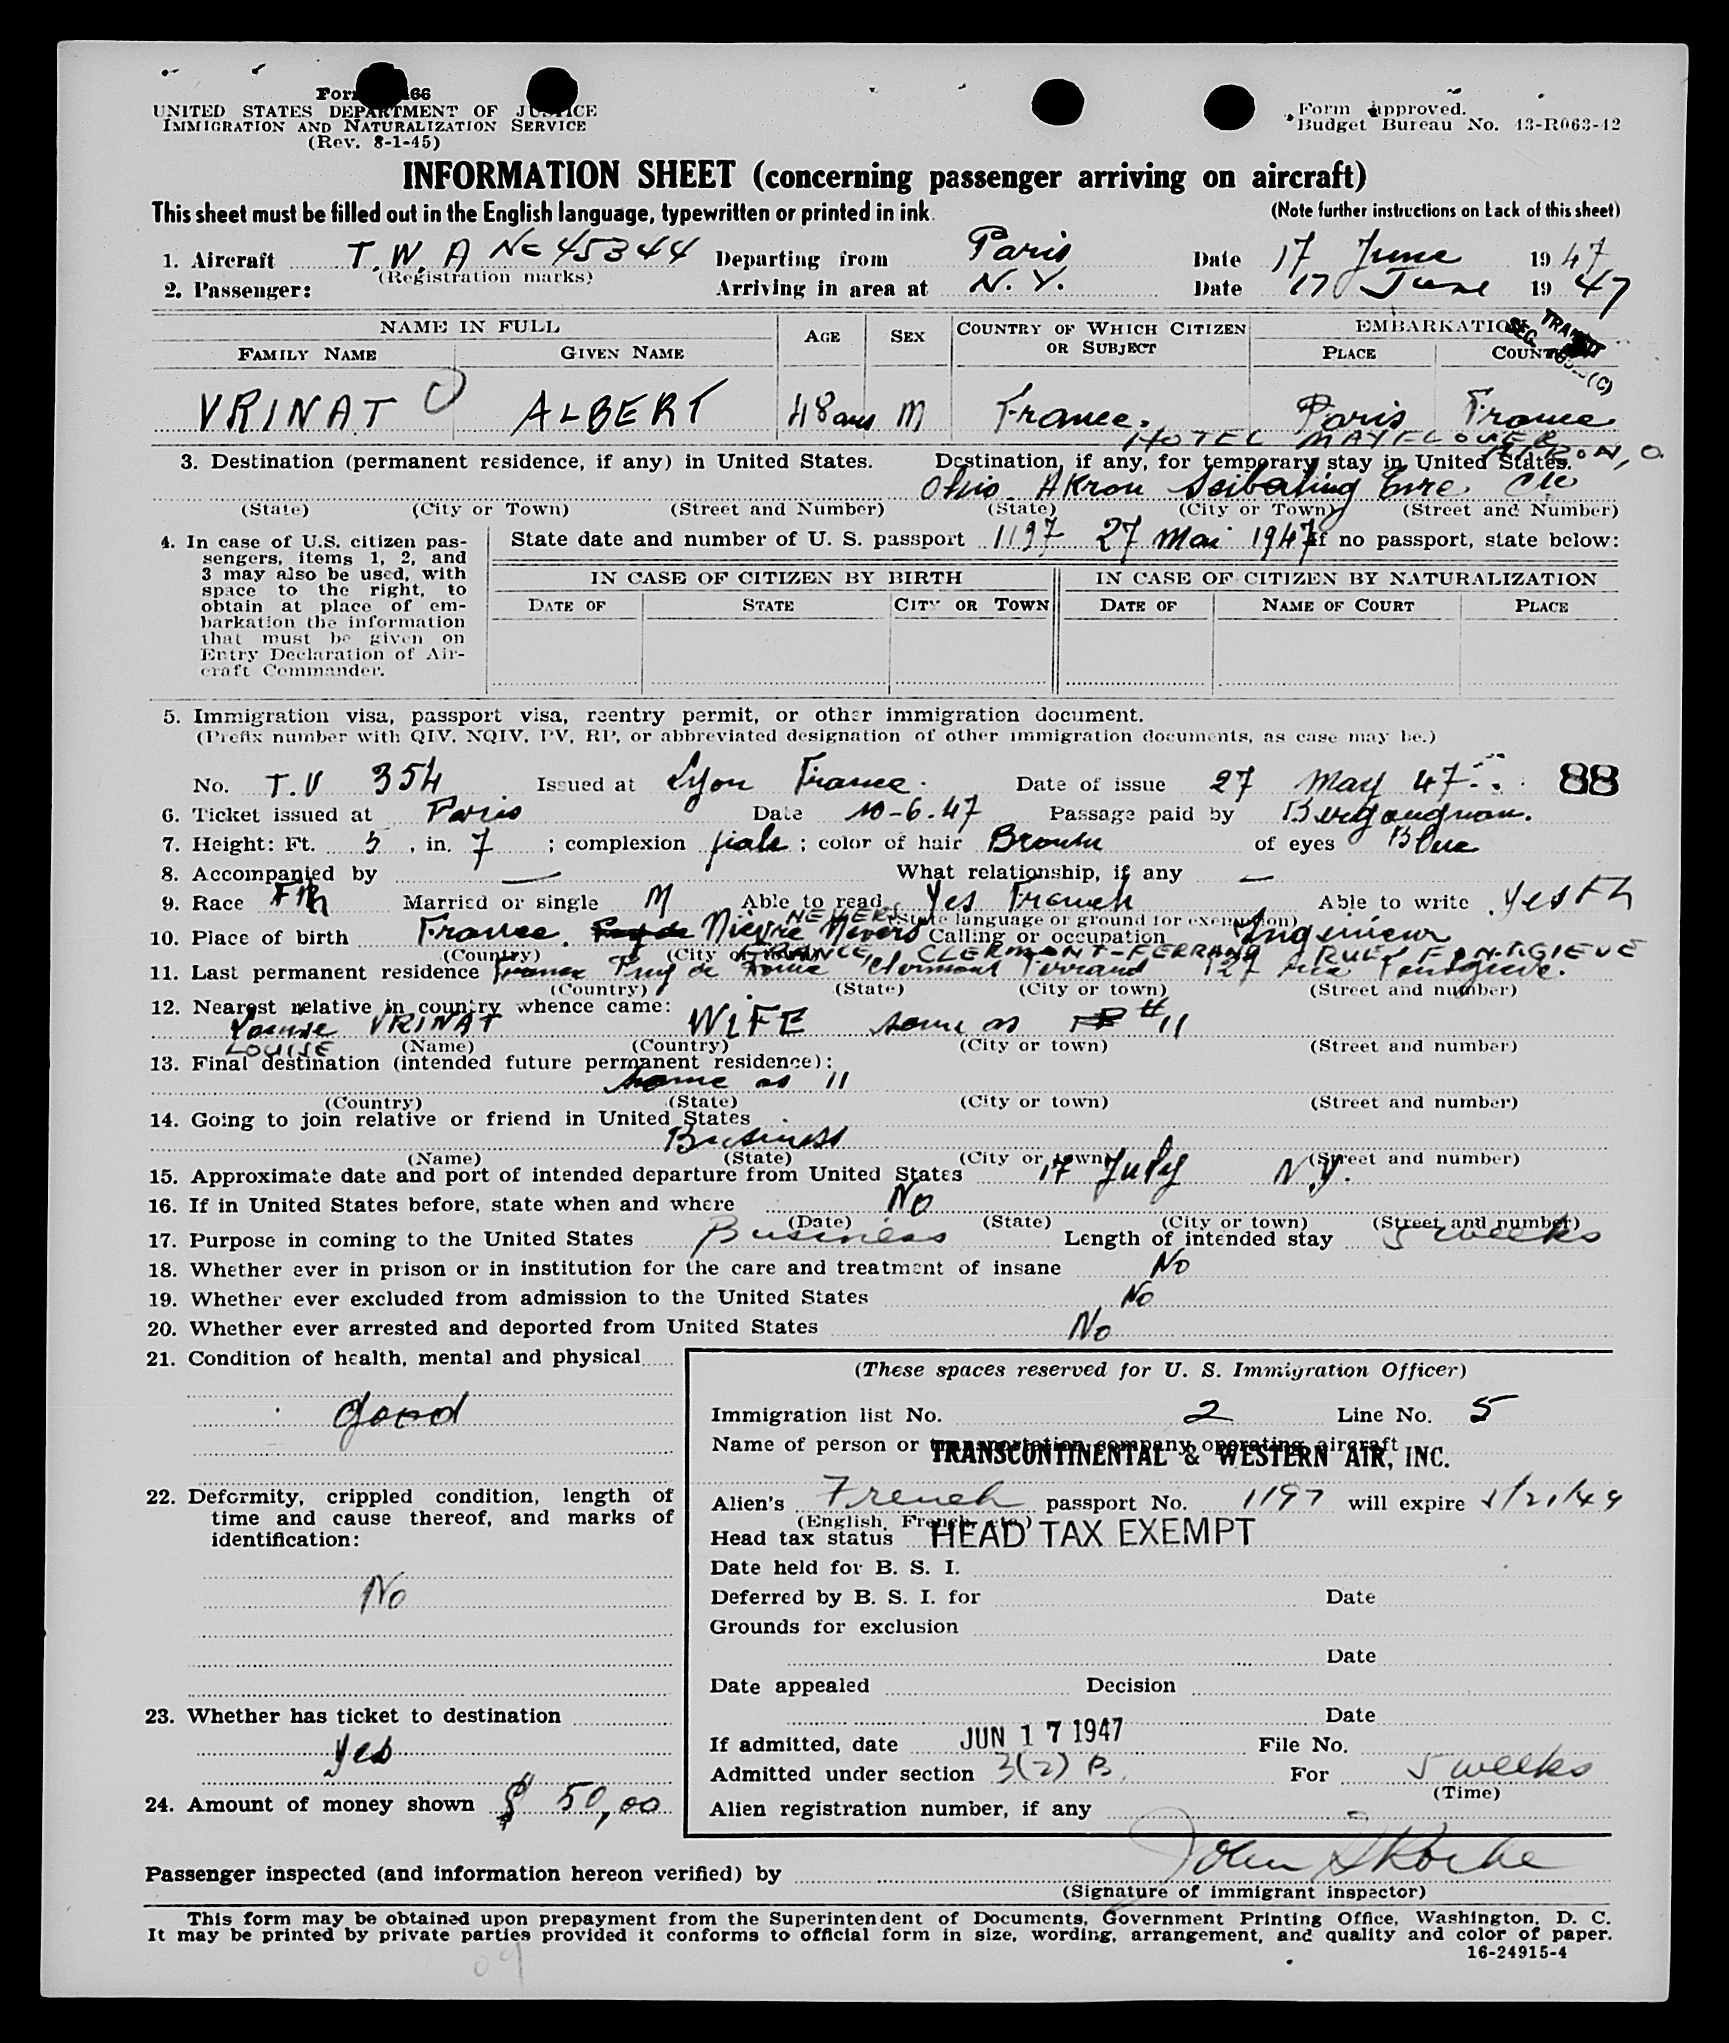 UNITED STATES DEPARTMENT OF JUSTICE
IMMIGRATION AND NATURALIZATION SERVICE
(Rev. 8-1-45)
Form approved.
Budget Bureau No. 43-R063-42
INFORMATION SHEET (concerning passenger arriving on aircraft)
This sheet must be filled out in the English language, typewritten or printed in ink.
(Note further instructions on back of this sheet)
1. Aircraft T.W.A NC 45344 Departing from Paris Date 17 June 1947
(Registration marks)
2. Passenger: Arriving in area at N.Y. Date 17 June 1947
NAME IN FULL AGE SEX COUNTRY OF WHICH CITIZEN OR SUBJECT EMBARKATION
FAMILY NAME GIVEN NAME PLACE COUNTRY
VRINAT ALBERT 48 ans M France. Paris France
HOTEL MAYFLOWER
AKRON, O.
3. Destination (permanent residence, if any) in United States. Destination, if any, for temporary stay in United States.
Ohio. Akron Seiberling
(State) (City or Town) (Street and Number) (State) (City or Town) (Street and Number)
4. In case of U.S. citizen passengers, items 1, 2, and 3 may also be used, with space to the right, to obtain at place of embarkation the information that must be given on Entry Declaration of Aircraft Commander.
State date and number of U. S. passport 1197 27 Mai 1947 If no passport, state below:
IN CASE OF CITIZEN BY BIRTH IN CASE OF CITIZEN BY NATURALIZATION
DATE OF STATE CITY OR TOWN DATE OF NAME OF COURT PLACE
5. Immigration visa, passport visa, reentry permit, or other immigration document.
(Prefix number with QIV, NQIV, PV, RP, or abbreviated designation of other immigration documents, as case may be.)
No. T.V 354 Issued at Lyon France. Date of issue 27 May 47 88
6. Ticket issued at Paris Date 10-6.47 Passage paid by Bergougnan.
7. Height: Ft. 5, in. 7; complexion pale; color of hair Brown of eyes Blue
8. Accompanied by — What relationship, if any —
9. Race Married or single M Able to read Yes French Able to write Yes Fh
NEVERS (State language or ground for exemption)
10. Place of birth France. Nièvre Nevers Calling or occupation Ingenieur
(Country) (City or town) FRANCE, CLERMONT-FERRAND RUE FONTGIEVE
11. Last permanent residence France Puy de Dome Clermont Ferrand 127 rue Fontgieve.
(Country) (State) (City or town) (Street and number)
12. Nearest relative in country whence came:
Louise VRINAT WIFE same as #11
LOUISE (Name) (Country) (City or town) (Street and number)
13. Final destination (intended future permanent residence):
same as 11
(Country) (State) (City or town) (Street and number)
14. Going to join relative or friend in United States
Business
(Name) (State) (City or town) (Street and number)
15. Approximate date and port of intended departure from United States 17 July N.Y.
16. If in United States before, state when and where No
(Date) (State) (City or town) (Street and number)
17. Purpose in coming to the United States Business Length of intended stay 5 weeks
18. Whether ever in prison or in institution for the care and treatment of insane No
19. Whether ever excluded from admission to the United States No
20. Whether ever arrested and deported from United States No
21. Condition of health, mental and physical
good
22. Deformity, crippled condition, length of time and cause thereof, and marks of identification:
No
23. Whether has ticket to destination
Yes
24. Amount of money shown $ 50,00
(These spaces reserved for U. S. Immigration Officer)
Immigration list No. 2 Line No. 5
Name of person or transportation company operating aircraft
TRANSCONTINENTAL & WESTERN AIR, INC.
Alien's French passport No. 1197 will expire
(English, French, etc.)
Head tax status HEAD TAX EXEMPT
Date held for B. S. I.
Deferred by B. S. I. for Date
Grounds for exclusion
Date
Date appealed Decision
Date
If admitted, date JUN 17 1947 File No.
Admitted under section 3(2) B. For 5 weeks
(Time)
Alien registration number, if any
Passenger inspected (and information hereon verified) by John
(Signature of immigrant inspector)
This form may be obtained upon prepayment from the Superintendent of Documents, Government Printing Office, Washington, D. C.
It may be printed by private parties provided it conforms to official form in size, wording, arrangement, and quality and color of paper.
16-24915-4